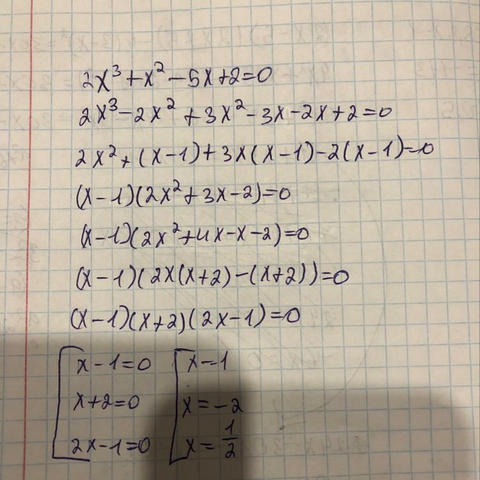 2x³+x²-5x+2=0
2x³-2x²+3x²-3x-2x+2=0
2x²+(x-1)+3x(x-1)-2(x-1)=0
(x-1)(2x²+3x-2)=0
(x-1)(2x²+4x-x-2)=0
(x-1)(2x(x+2)-(x+2))=0
(x-1)(x+2)(2x-1)=0
[x-1=0 [x-1
x+2=0 x=-2
2x-1=0 x=1/2